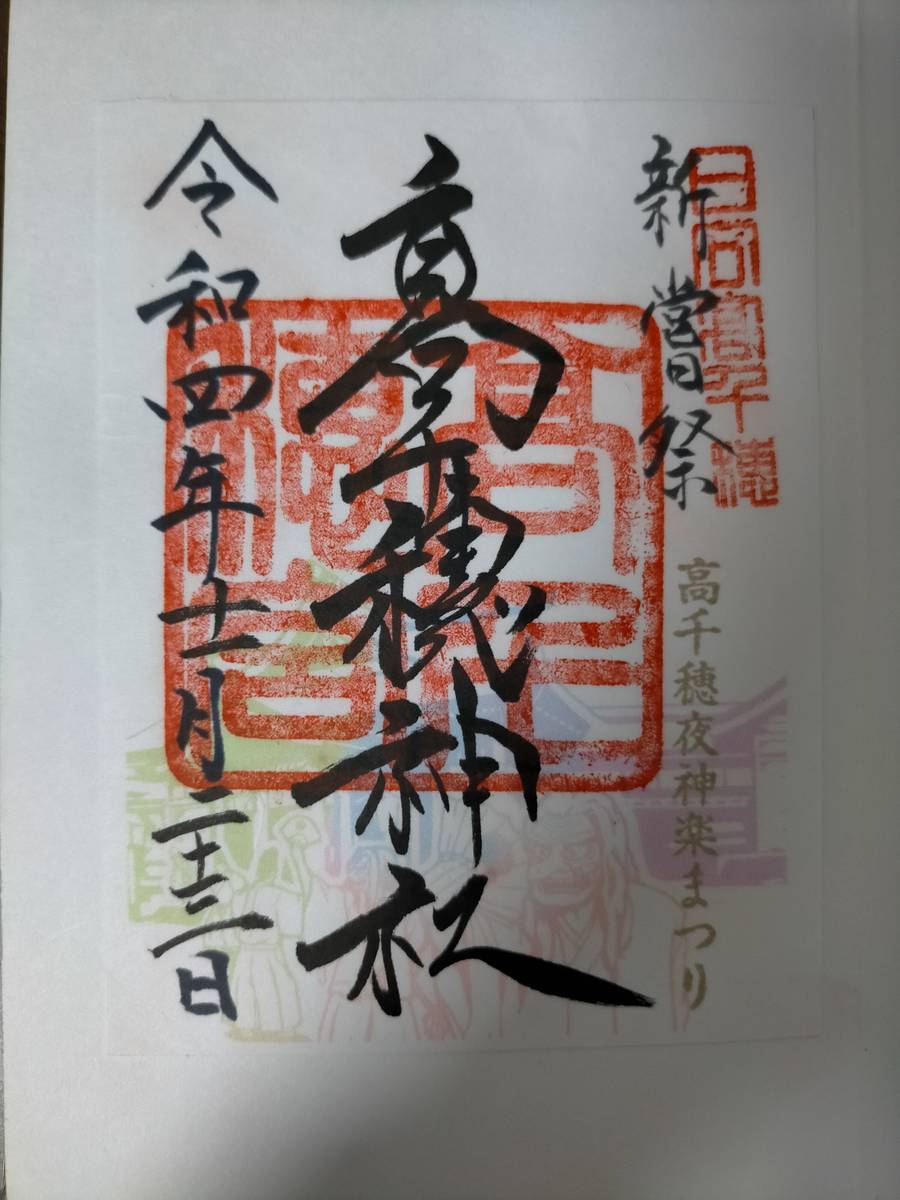 日向高千穂
新嘗祭
高千穂夜神楽まつり
高千穂神社
高千穂宮
令和四年十一月二十三日